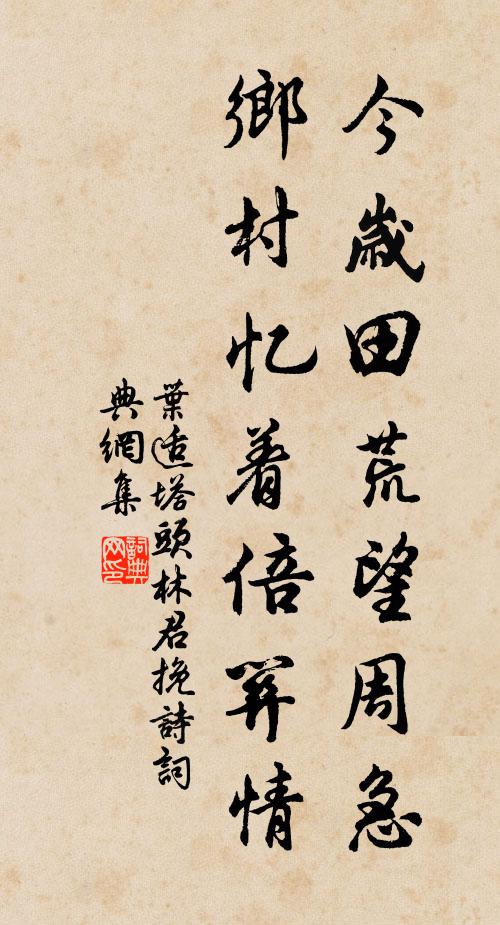 今歲田荒望周急
鄉村忆着倍關情
葉适塔頭林君挽詩詞
典網集
詞典
网印